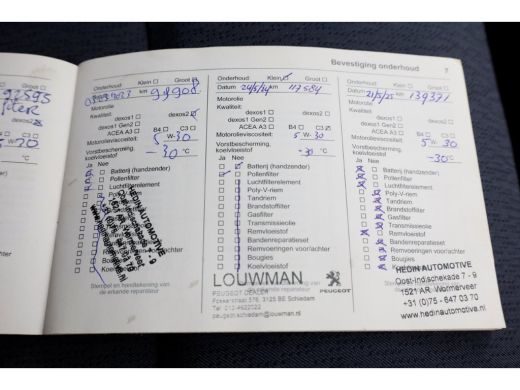 Bevestiging onderhoud
7
97595
Klein Groot
km 99908
Motorolie
Kwaliteit:
dexos2
dexos1 Gen2
ACEA A3 B4 C3
Motorolieviscositeit: 5W30
Vorstbescherming,
koelvloeistof -30 °C
Ja Nee
Batterij (handzender)
Pollenfilter
Luchtfilterelement
Poly-V-riem
HEDIN AUTOMOTIVE
Stempel en handtekening van
de erkende reparateur
Onderhoud: Klein Groot
Datum 24/5/24 km 117584
Motorolie
Kwaliteit:
dexos2
dexos1 Gen2
ACEA A3 B4 C3
Motorolieviscositeit: 5W-30
Vorstbescherming,
koelvloeistof -30 °C
Ja Nee
Batterij (handzender)
Pollenfilter
Luchtfilterelement
Poly-V-riem
Tandriem
Brandstoffilter
Gasfilter
Transmissieolie
Remvloeistof
Bandenreparatieset
Remvoeringen voor/achter
Bougies
Koelvloeistof
LOUWMAN PEUGEOT
PEUGEOT DEALER
, 3125 BE Schiedam
peugeot.schiedam@louwman.nl
Onderhoud: Klein Groot
Datum 21/5/25 km 139371
Motorolie
Kwaliteit:
dexos2
dexos1 Gen2
ACEA A3 B4 C3
Motorolieviscositeit: 5W30
Vorstbescherming,
koelvloeistof -30 °C
Ja Nee
Batterij (handzender)
Pollenfilter
Luchtfilterelement
Poly-V-riem
Tandriem
Brandstoffilter
Gasfilter
Transmissieolie
Remvloeistof
Bandenreparatieset
Remvoeringen voor/achter
Bougies
Koelvloeistof
HEDIN AUTOMOTIVE
Oost-Indischekade 7 - 9
1521 AR Wormerveer
+31 (0)75 - 647 03 70
www.hedinautomotive.nl